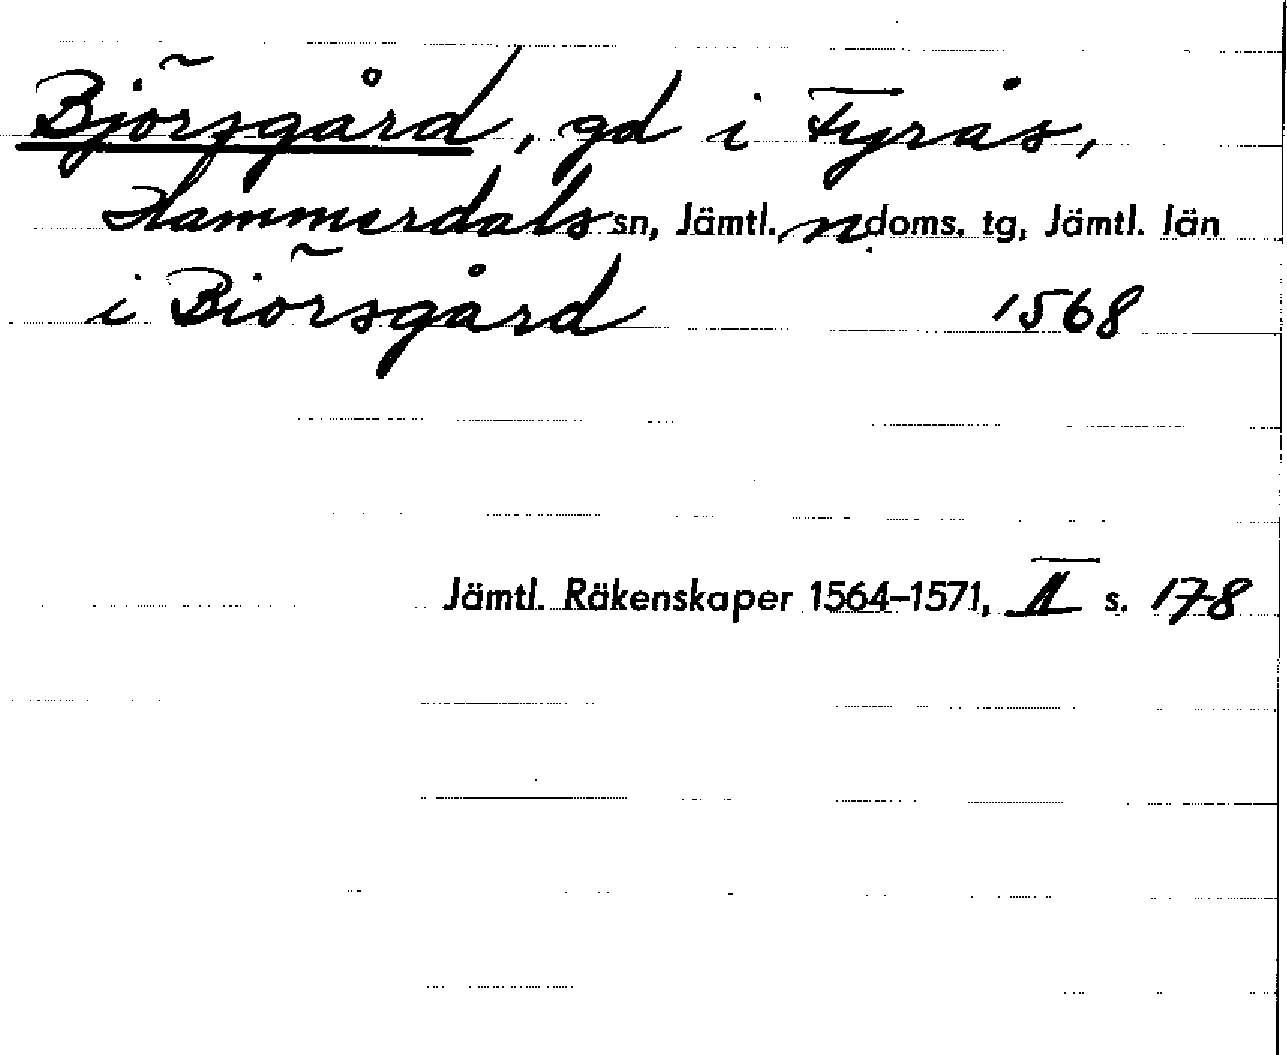 Björsgård, gd i Fyrås,
Hammerdals sn, Jämtl. n doms. tg, Jämtl. län
i Biörsgård 1568
Jämtl. Räkenskaper 1564–1571, II s. 178